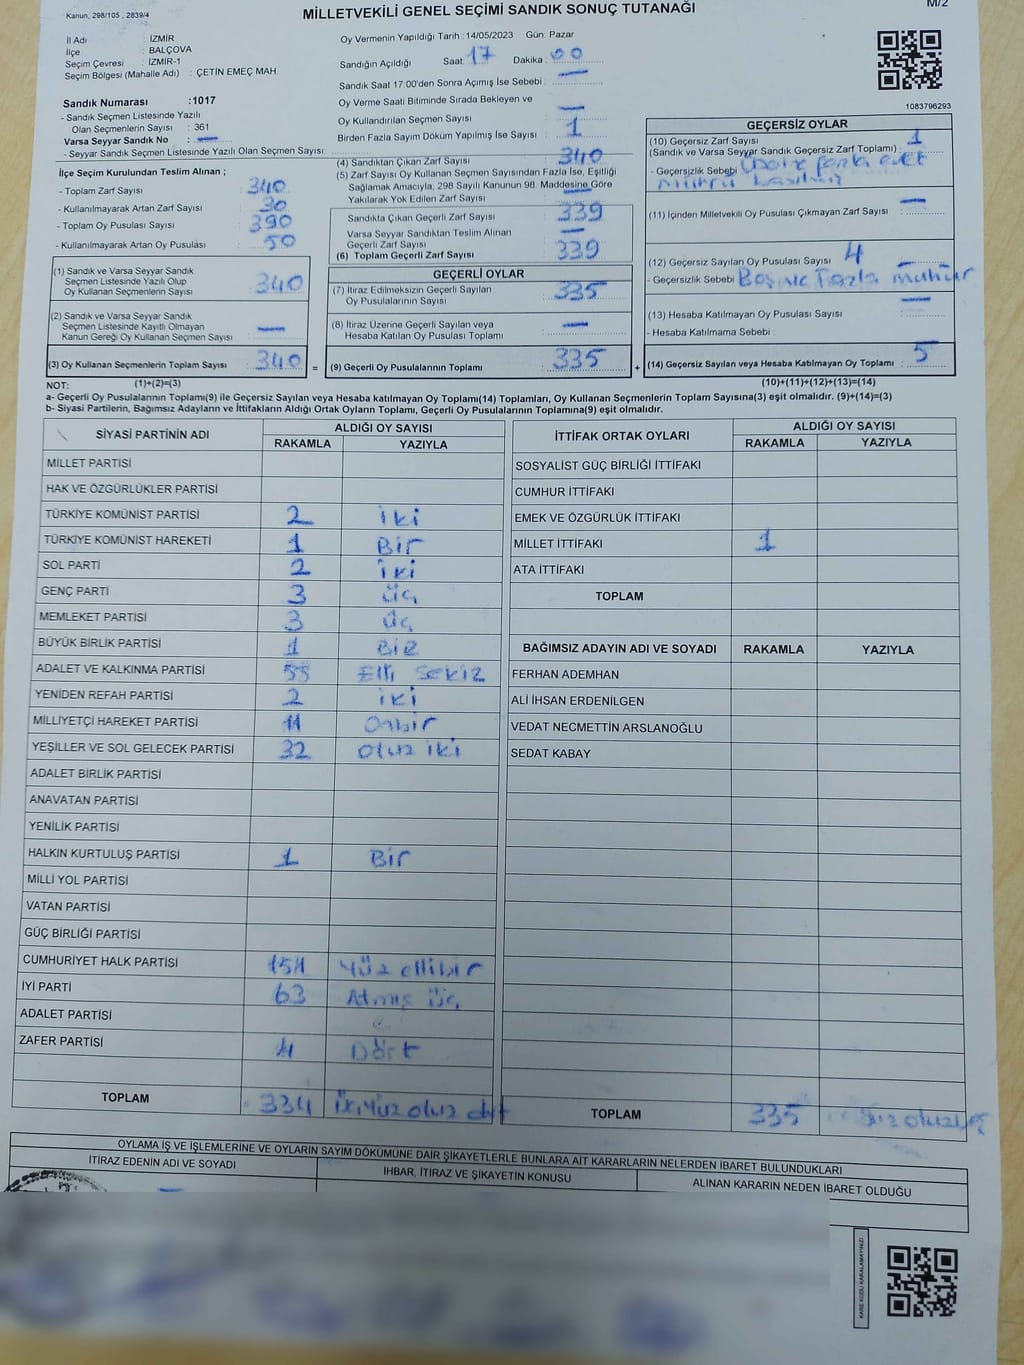 Kanun; 298/105 , 2839/4
MİLLETVEKİLİ GENEL SEÇİMİ SANDIK SONUÇ TUTANAĞI
M/2
İl Adı : İZMİR
İlçe : BALÇOVA
Seçim Çevresi : İZMİR-1
Seçim Bölgesi (Mahalle Adı) : ÇETİN EMEÇ MAH.
Sandık Numarası :1017
- Sandık Seçmen Listesinde Yazılı
Olan Seçmenlerin Sayısı : 361
Varsa Seyyar Sandık No : —
- Seyyar Sandık Seçmen Listesinde Yazılı Olan Seçmen Sayısı:
İlçe Seçim Kurulundan Teslim Alınan ;
- Toplam Zarf Sayısı : 340
- Kullanılmayarak Artan Zarf Sayısı : 30
- Toplam Oy Pusulası Sayısı : 390
- Kullanılmayarak Artan Oy Pusulası : 50
(1) Sandık ve Varsa Seyyar Sandık
Seçmen Listesinde Yazılı Olup
Oy Kullanan Seçmenlerin Sayısı : 340
(2) Sandık ve Varsa Seyyar Sandık
Seçmen Listesinde Kayıtlı Olmayan
Kanun Gereği Oy Kullanan Seçmen Sayısı : —
(3) Oy Kullanan Seçmenlerin Toplam Sayısı : 340
Oy Vermenin Yapıldığı Tarih : 14/05/2023 Gün: Pazar
Sandığın Açıldığı Saat: 17 Dakika : 00
Sandık Saat 17:00'den Sonra Açımış İse Sebebi : —
Oy Verme Saati Bitiminde Sırada Bekleyen ve
Oy Kullandırılan Seçmen Sayısı : —
Birden Fazla Sayım Döküm Yapılmış İse Sayısı : 1
(4) Sandıktan Çıkan Zarf Sayısı : 340
(5) Zarf Sayısı Oy Kullanan Seçmen Sayısından Fazla İse, Eşitliği
Sağlamak Amacıyla, 298 Sayılı Kanunun 98. Maddesine Göre
Yakılarak Yok Edilen Zarf Sayısı : —
Sandıkta Çıkan Geçerli Zarf Sayısı : 339
Varsa Seyyar Sandıktan Teslim Alınan
Geçerli Zarf Sayısı : —
(6) Toplam Geçerli Zarf Sayısı : 339
GEÇERLİ OYLAR
(7) İtiraz Edilmeksizin Geçerli Sayılan
Oy Pusulalarının Sayısı : 335
(8) İtiraz Üzerine Geçerli Sayılan veya
Hesaba Katılan Oy Pusulası Toplamı : —
= (9) Geçerli Oy Pusulalarının Toplamı : 335 +
1083796293
GEÇERSİZ OYLAR
(10) Geçersiz Zarf Sayısı : 1
(Sandık ve Varsa Seyyar Sandık Geçersiz Zarf Toplamı)
- Geçersizlik Sebebi fazla evet
mührü
(11) İçinden Milletvekili Oy Pusulası Çıkmayan Zarf Sayısı : —
(12) Geçersiz Sayılan Oy Pusulası Sayısı : 4
- Geçersizlik Sebebi Boş ve Fazla mühür
(13) Hesaba Katılmayan Oy Pusulası Sayısı : —
- Hesaba Katılmama Sebebi :
(14) Geçersiz Sayılan veya Hesaba Katılmayan Oy Toplamı : 5
NOT: (1)+(2)=(3) (10)+(11)+(12)+(13)=(14)
a- Geçerli Oy Pusulalarının Toplamı(9) ile Geçersiz Sayılan veya Hesaba katılmayan Oy Toplamı(14) Toplamları, Oy Kullanan Seçmenlerin Toplam Sayısına(3) eşit olmalıdır. (9)+(14)=(3)
b- Siyasi Partilerin, Bağımsız Adayların ve İttifakların Aldığı Ortak Oyların Toplamı, Geçerli Oy Pusulalarının Toplamına(9) eşit olmalıdır.
SİYASİ PARTİNİN ADI ALDIĞI OY SAYISI
RAKAMLA YAZIYLA
MİLLET PARTİSİ
HAK VE ÖZGÜRLÜKLER PARTİSİ
TÜRKİYE KOMÜNİST PARTİSİ 2 iki
TÜRKİYE KOMÜNİST HAREKETİ 1 Bir
SOL PARTİ 2 iki
GENÇ PARTİ 3 üç
MEMLEKET PARTİSİ 3 üç
BÜYÜK BİRLİK PARTİSİ 1 BİR
ADALET VE KALKINMA PARTİSİ Elli sekiz
YENİDEN REFAH PARTİSİ 2 iki
MİLLİYETÇİ HAREKET PARTİSİ 11 Onbir
YEŞİLLER VE SOL GELECEK PARTİSİ 32 otuz iki
ADALET BİRLİK PARTİSİ
ANAVATAN PARTİSİ
YENİLİK PARTİSİ
HALKIN KURTULUŞ PARTİSİ 1 Bir
MİLLİ YOL PARTİSİ
VATAN PARTİSİ
GÜÇ BİRLİĞİ PARTİSİ
CUMHURİYET HALK PARTİSİ 151 Yüz ellibir
İYİ PARTİ 63 Atmış üç
ADALET PARTİSİ
ZAFER PARTİSİ 4 Dört
TOPLAM 334 otuz dört
İTTİFAK ORTAK OYLARI ALDIĞI OY SAYISI
RAKAMLA YAZIYLA
SOSYALİST GÜÇ BİRLİĞİ İTTİFAKI
CUMHUR İTTİFAKI
EMEK VE ÖZGÜRLÜK İTTİFAKI
MİLLET İTTİFAKI 1
ATA İTTİFAKI
TOPLAM
BAĞIMSIZ ADAYIN ADI VE SOYADI RAKAMLA YAZIYLA
FERHAN ADEMHAN
ALİ İHSAN ERDENİLGEN
VEDAT NECMETTİN ARSLANOĞLU
SEDAT KABAY
TOPLAM 335
OYLAMA İŞ VE İŞLEMLERİNE VE OYLARIN SAYIM DÖKÜMÜNE DAİR ŞİKAYETLERLE BUNLARA AİT KARARLARIN NELERDEN İBARET BULUNDUKLARI
İTİRAZ EDENİN ADI VE SOYADI İHBAR, İTİRAZ VE ŞİKAYETİN KONUSU ALINAN KARARIN NEDEN İBARET OLDUĞU
KARE KODU KARALAMAYINIZ!